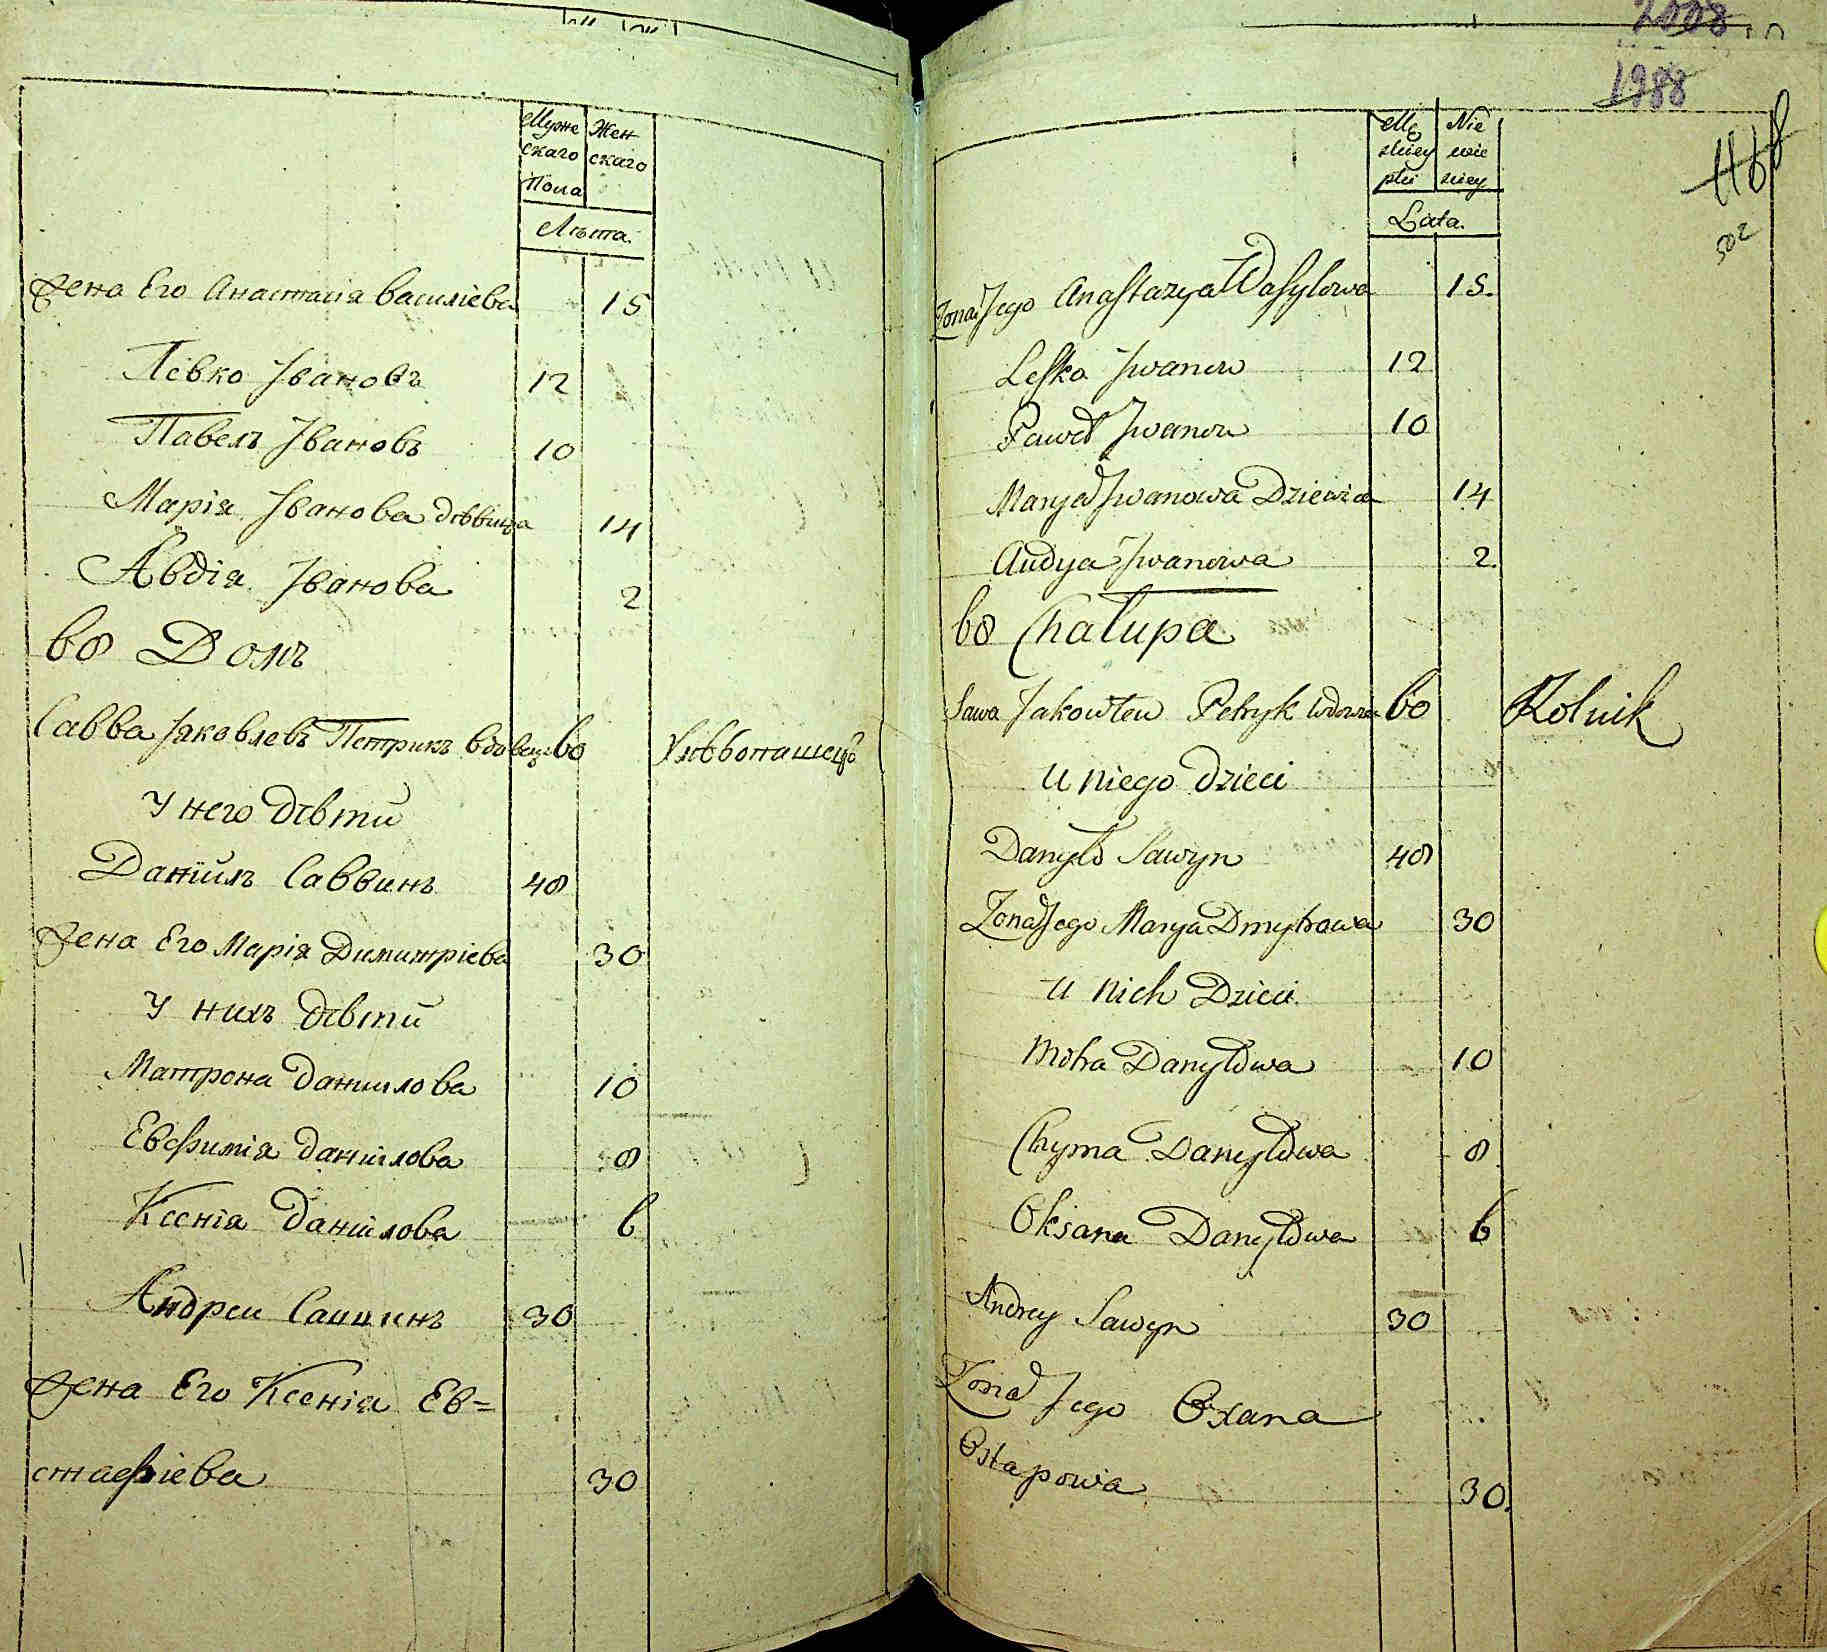 Муже
скаго
Пола
Жен
скаго
Лѣта.
Жена Его Анастасія Василіева 15
Левко Івановъ 12
Павелъ Івановъ 10
Марія Іванова дѣвица 14
Авдія Іванова 2
68 Домъ
Савва Яковлевъ Петрикъ вдовецъ 60 Хлѣбопашецъ
У него дѣти
Даніилъ Саввинъ 48
Жена Его Марія Димитріева 30
У нихъ дѣти
Матрона Даниилова 10
Евфимія Даніилова 8
Ксенія Даніилова 6
Андреи Саввинъ 30
Жена Его Ксенія Ев=
стафіева 30
2008
1988
502
Mę
skiey
płci
Nie
wie
sciey
Lata.
Zona Jego Anastazya Wasylowa 15.
Lesko Iwanow 12
Paweł Iwanow 10
Marya Iwanowa Dziewica 14
Audya Iwanowa 2.
68 Chałupa
Sawa Jakowlew Petryk wdowiec 60 Rolnik
u niego dzieci
Danyło Sawyn 48
Zona Jego Marya Dmytrowa 30
u nich Dzieci
Motra Danyłowa 10
Chyma Danyłowa 8
Oksana Danyłowa 6
Andrey Sawyn 30
Zona Jego Oxana
Ostapowa 30.